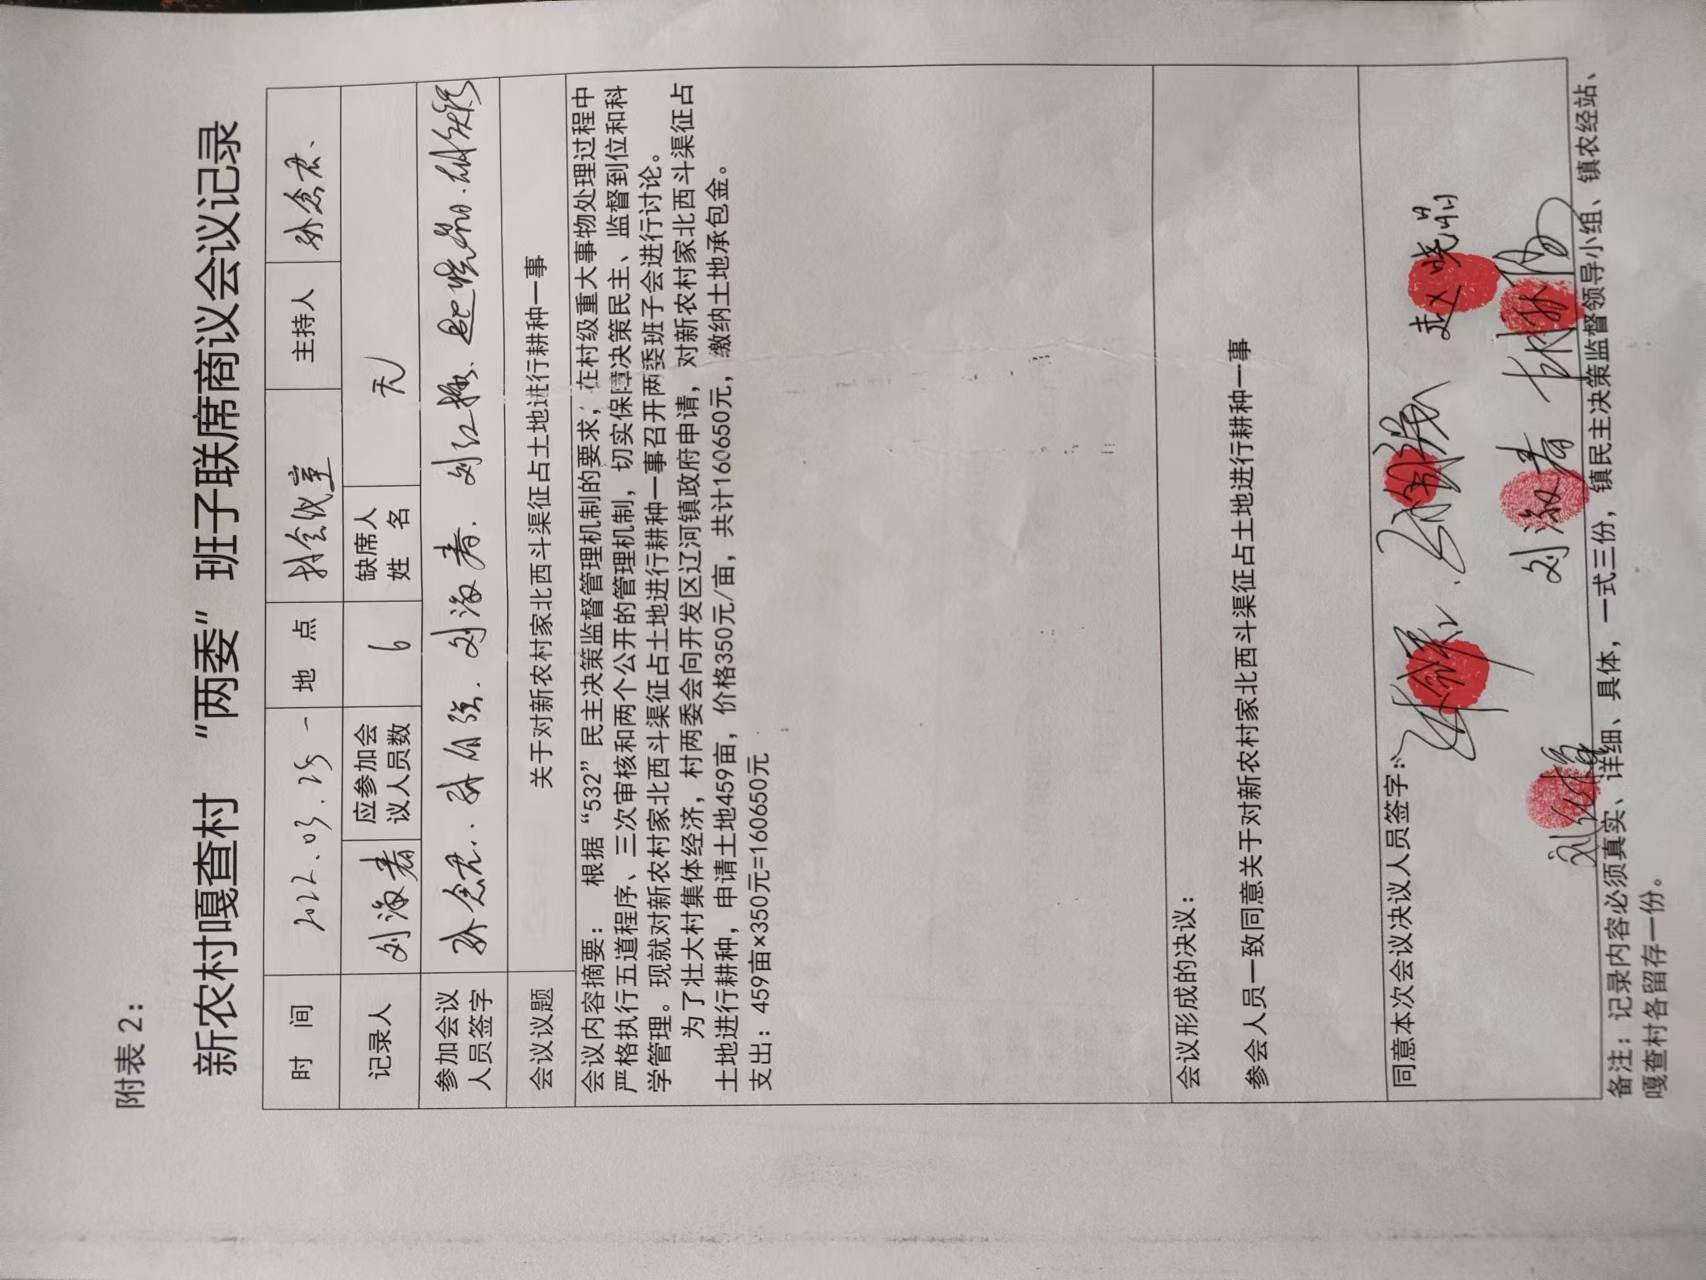 附表2：
新农村嘎查村 “两委”班子联席商议会议记录
时 间 2022.03.25 地 点 村会议室 主持人
记录人 刘海青 应参加会议人员数 6 缺席人姓 名 无
参加会议人员签字 刘海青
会议议题 关于对新农村家北西斗渠征占土地进行耕种一事
会议内容摘要： 根据“532”民主决策监督管理机制的要求，在村级重大事物处理过程中
严格执行五道程序、三次审核和两个公开的管理机制，切实保障决策民主、监督到位和科
学管理。现就对新农村家北西斗渠征占土地进行耕种一事召开两委班子会进行讨论。
为了壮大村集体经济，村两委会向开发区辽河镇政府申请，对新农村家北西斗渠征占
土地进行耕种，申请土地459亩，价格350元/亩，共计160650元，缴纳土地承包金。
支出：459亩×350元=160650元
会议形成的决议：
参会人员一致同意关于对新农村家北西斗渠征占土地进行耕种一事
同意本次会议决议人员签字：
赵晓晶
刘海青
备注：记录内容必须真实、详细、具体，一式三份，镇民主决策监督领导小组、镇农经站、
嘎查村各留存一份。